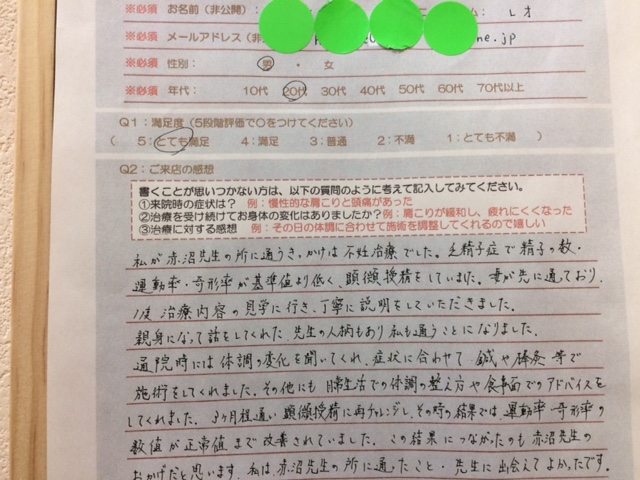 ※必須 お名前（非公開） ム： レオ
※必須 メールアドレス（非 ne.jp
※必須 性別： 男 ・ 女
※必須 年代： 10代 20代 30代 40代 50代 60代 70代以上
Q1：満足度（5段階評価で○をつけてください）
（ 5：とても満足 4：満足 3：普通 2：不満 1：とても不満 ）
Q2：ご来店の感想
書くことが思いつかない方は、以下の質問のように考えて記入してみてください。
①来院時の症状は？ 例：慢性的な肩こりと頭痛があった
②治療を受け続けてお身体の変化はありましたか？ 例：肩こりが緩和し、疲れにくくなった
③治療に対する感想 例：その日の体調に合わせて施術を調整してくれるので嬉しい
私が赤沼先生の所に通うきっかけは不妊治療でした。乏精子症で精子の数・
運動率・奇形率が基準値より低く、顕微授精をしていました。妻が先に通っており、
1度治療内容の見学に行き、丁寧に説明をしていただきました。
親身になって話をしてくれた先生の人柄もあり私も通うことになりました。
通院時には体調の変化を聞いてくれ、症状に合わせて鍼や棒灸等で
施術をしてくれました。その他にも日常生活での体調の整え方や食事面でのアドバイスを
してくれました。3ヶ月程通い顕微授精に再チャレンジし、その時の結果では、運動率・奇形率の
数値が正常値まで改善されていました。この結果につながったのも赤沼先生の
おかげだと思います。私は、赤沼先生の所に通ったこと・先生に出会えてよかったです。